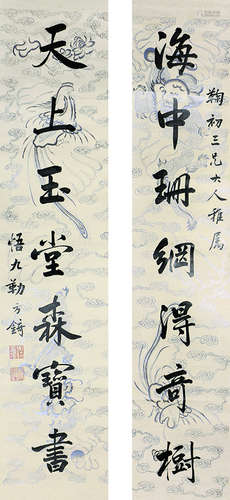 鞠初三兄大人雅属
海中珊網得奇樹
天上玉堂森寶書
悟九勒方錡